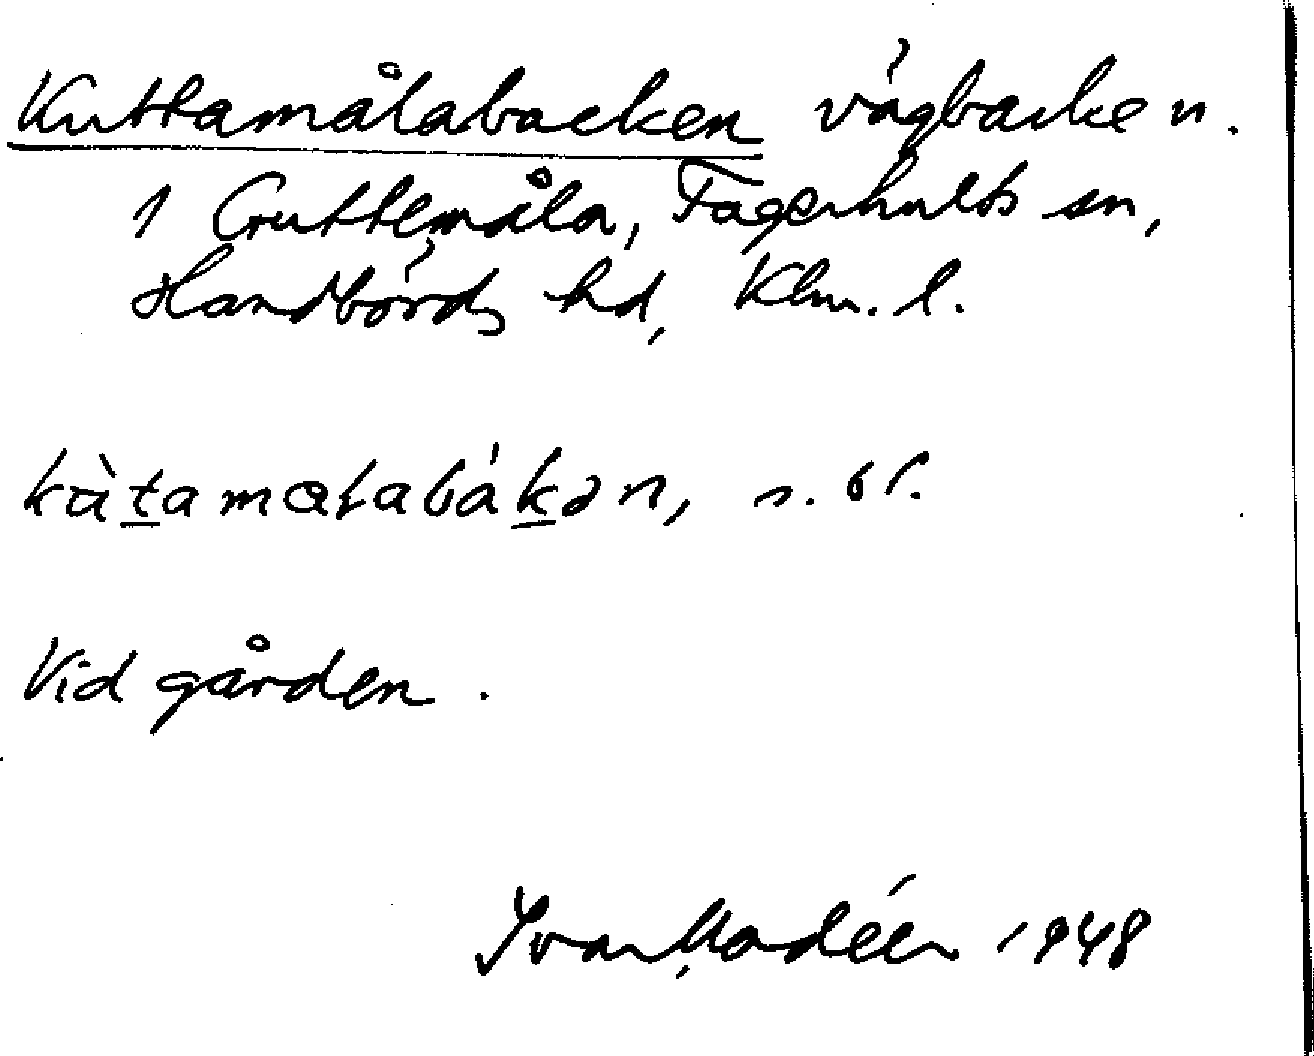 Kuttamålabacken vägbacken.
1 Guttemåla, Fagerhults sn,
Handbörds hd, Klm. l.
kùtamalabákən, s. bf.
Vid gården.
Ivar Modéer 1948